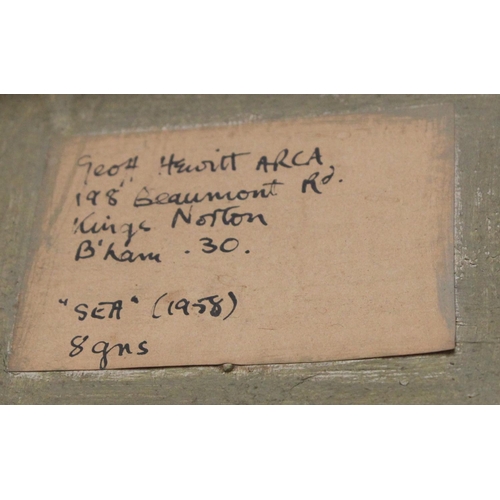 Geoff Hewitt ARCA,
198 Beaumont Rd.
Kings Norton
B'ham .30.
"SEA" (1958)
8 gns